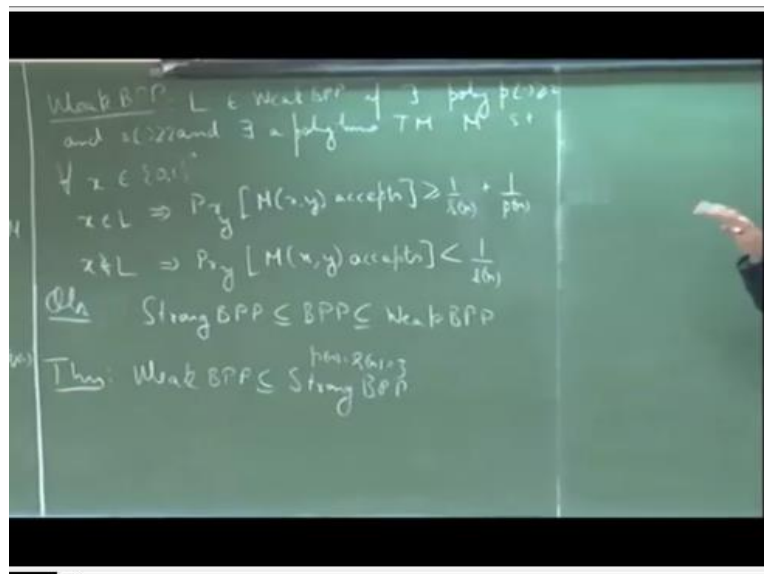 Weak BPP: L ∈ Weak BPP if ∃ poly p(·)≥2
and s(·)≥2 and ∃ a polytime TM M st
∀ x ∈ {0,1}*
x ∈ L ⇒ Pr_y [M(x,y) accepts] ≥ 1/s(n) + 1/p(n)
x ∉ L ⇒ Pr_y [M(x,y) accepts] < 1/s(n)
Obs Strong BPP ⊆ BPP ⊆ Weak BPP
Thm: Weak BPP ⊆ Strong BPP